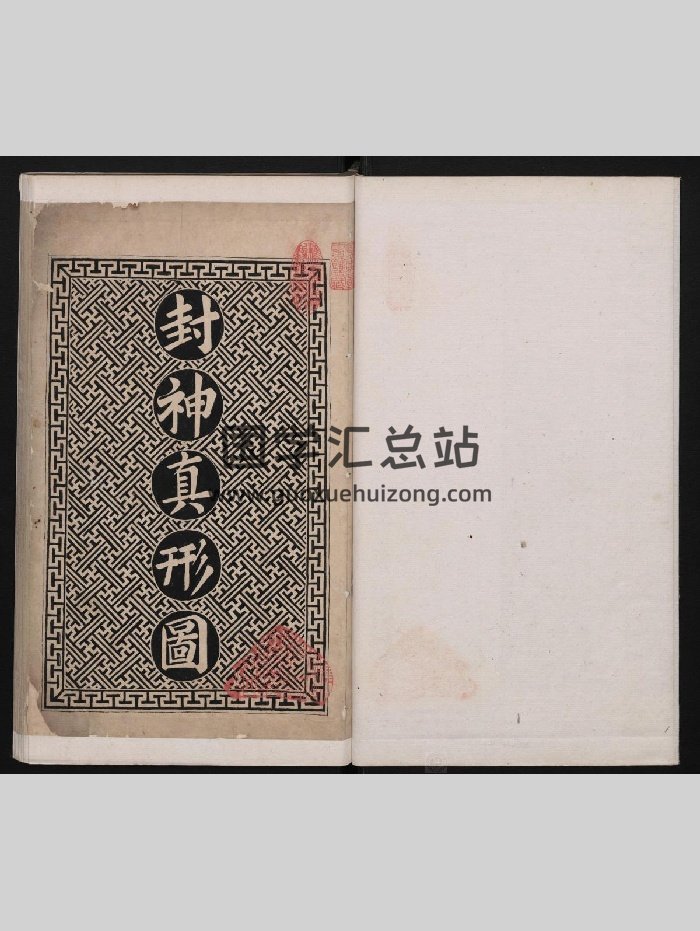 封神真形圖
国学汇总站
www.guoxuehuizong.com